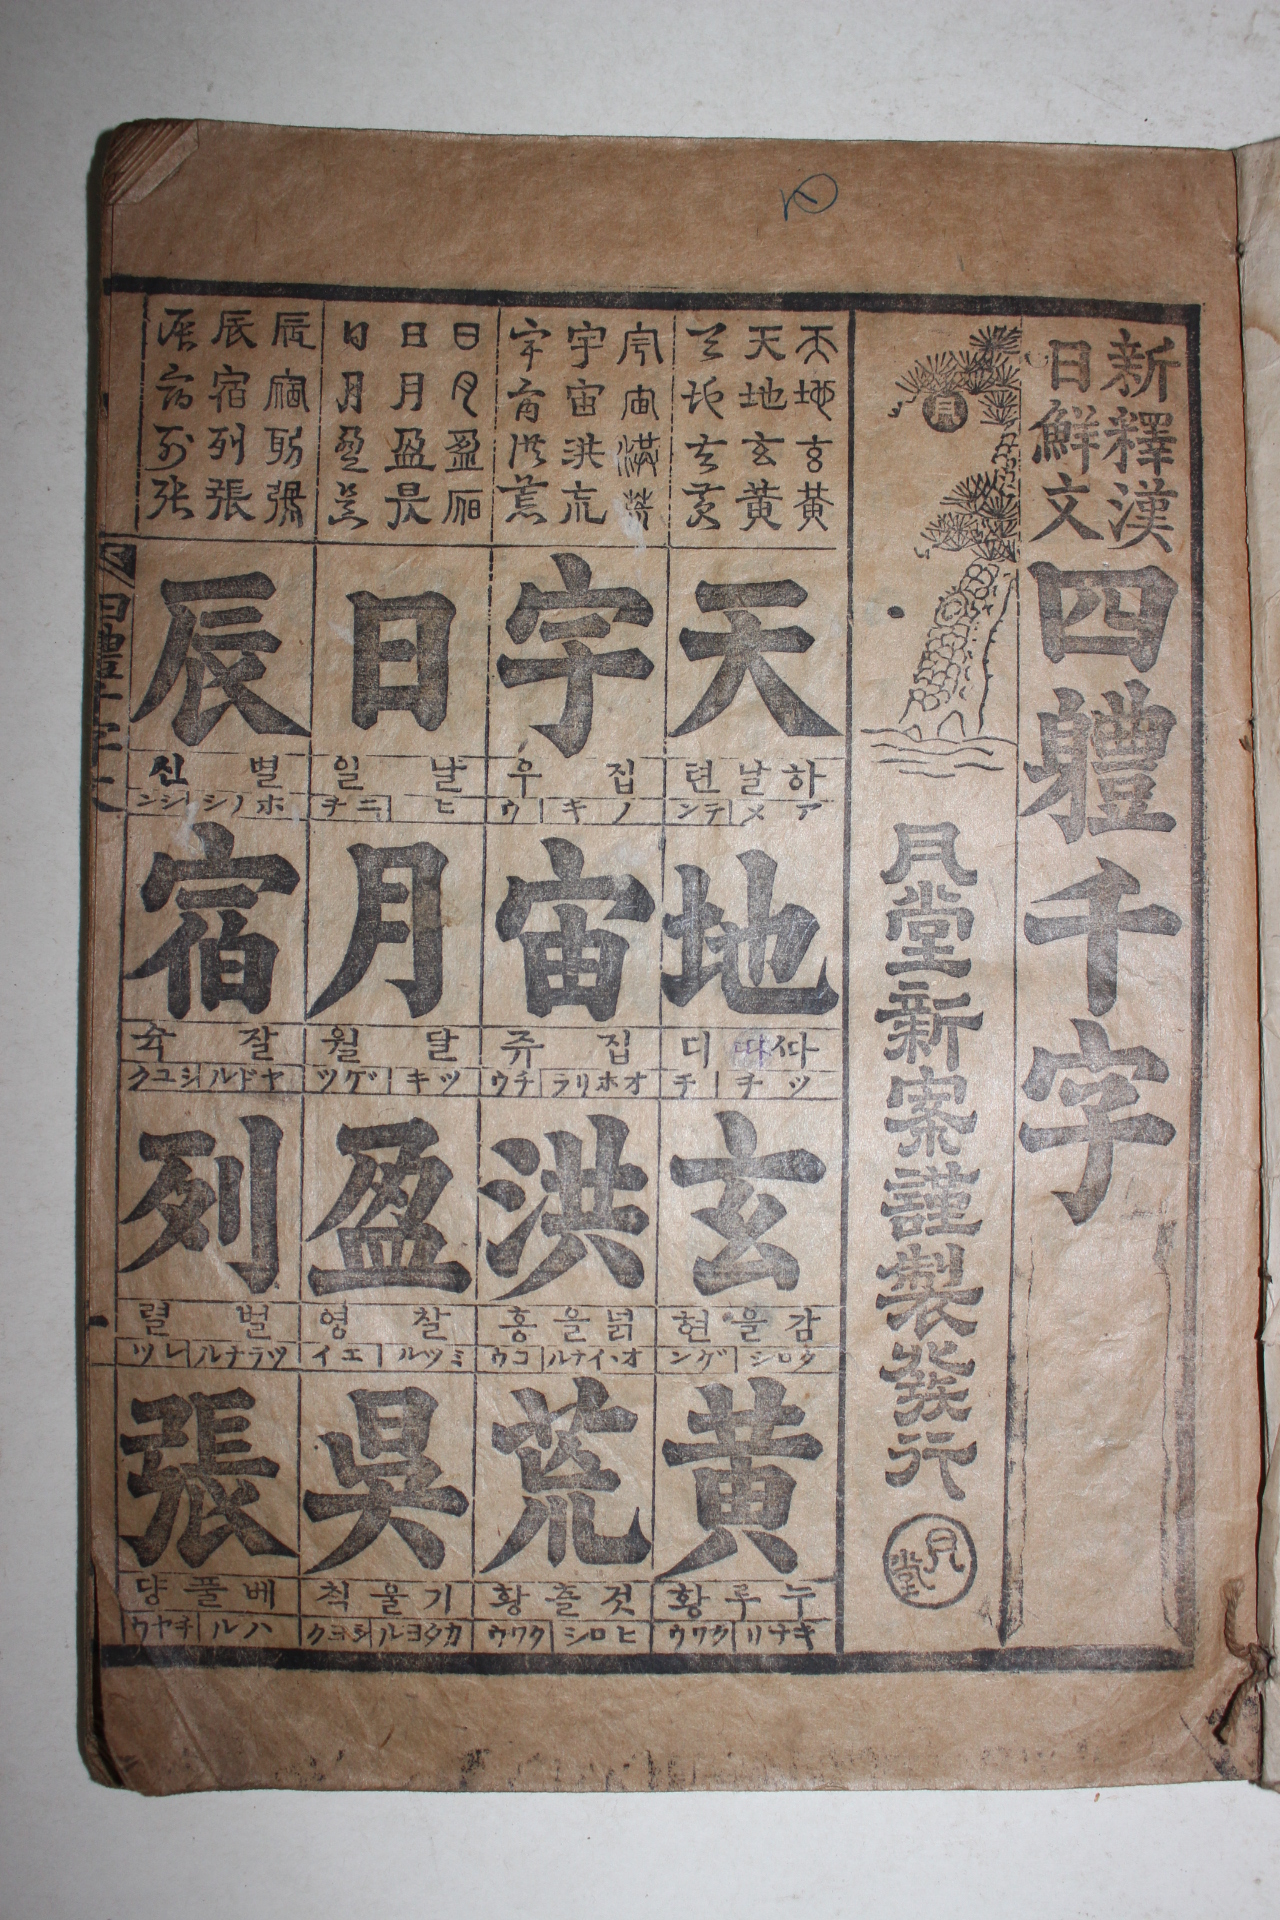 新釋漢
日鮮文
四軆千字
月
月堂新案謹製發行
月堂
天地玄黃
天地玄黃
天地玄黃
天
하날 텬
アメ テン
地
ᄯᅡ 따 디
ツチ チ
玄
감을 현
クロシ ゲン
黃
누루 황
キナリ クワウ
宇宙洪荒
宇宙洪荒
宇宙洪荒
宇
집 우
ノキ ウ
宙
집 쥬
オホソラ チウ
洪
넓을 홍
オヽイナル コウ
荒
것츨 황
ヒロシ クワウ
日月盈昃
日月盈昃
日月盈昃
日
날 일
ヒ ニチ
月
달 월
ツキ ゲツ
盈
찰 영
ミツル エイ
昃
기울 칙
カタヨル シヨク
辰宿列張
辰宿列張
辰宿列張
辰
별 신
ホノシ シン
宿
잘 슉
ヤドル シユク
列
벌 렬
ツラナル レツ
張
베풀 댱
ハル チヤウ
四體千字
一